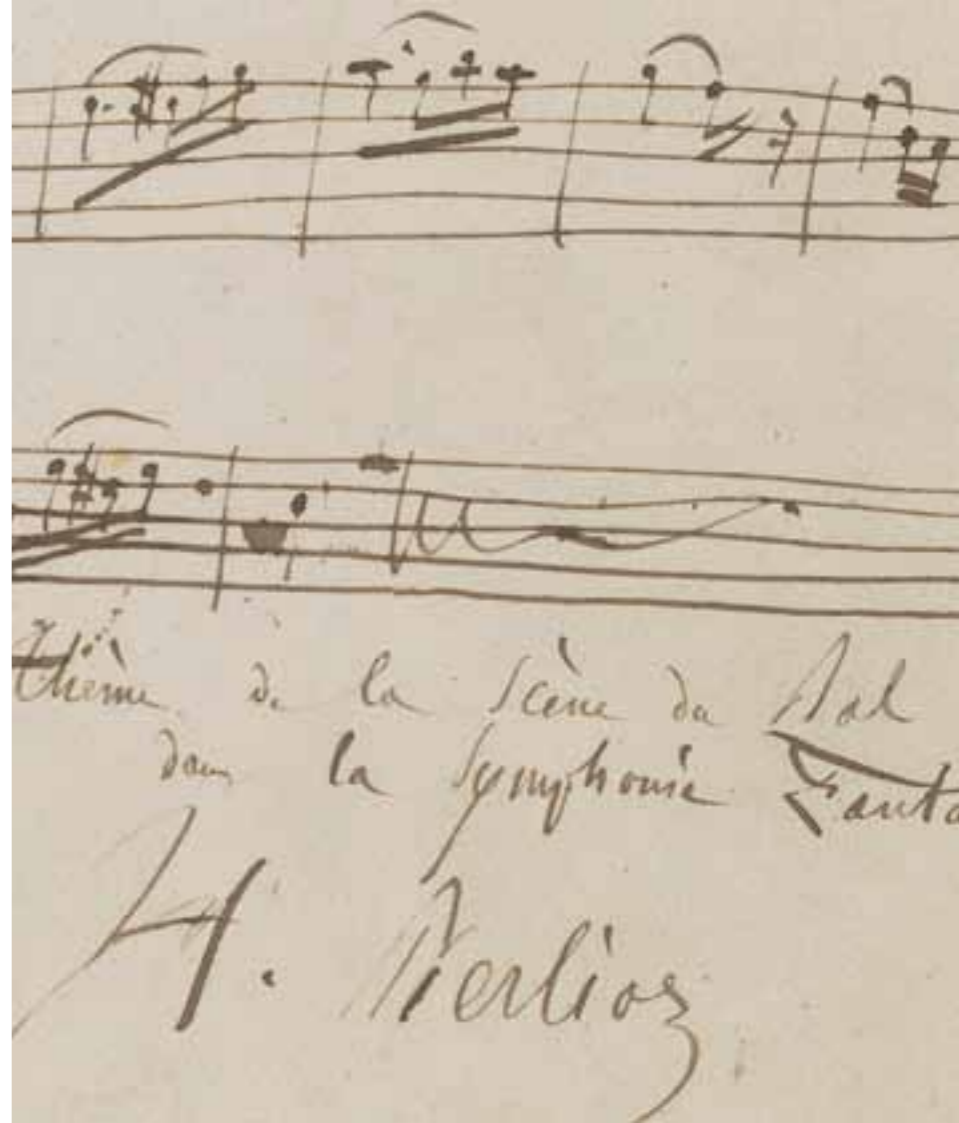 thème de la scène du Bal
dans la symphonie Fanta
H. Berlioz